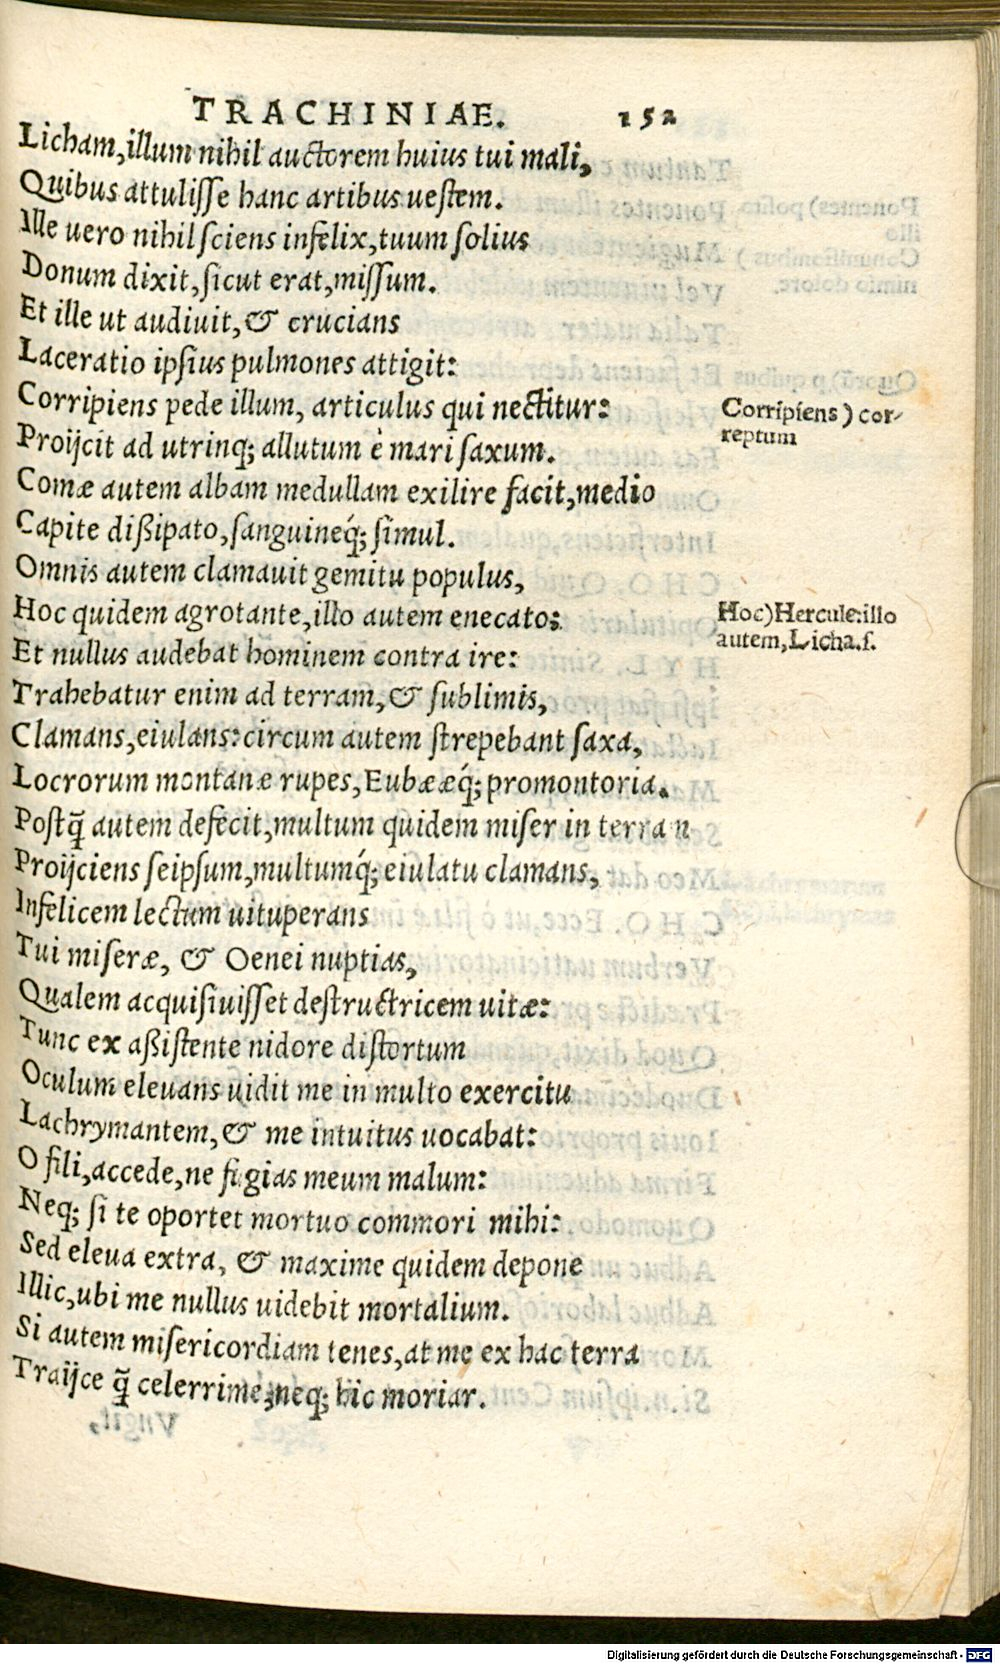 TRACHINIAE. 152
Licham, illum nihil auctorem huius tui mali,
Quibus attulisse hanc artibus uestem.
Ille uero nihil sciens infelix, tuum solius
Donum dixit, sicut erat, missum.
Et ille ut audiuit, & crucians
Laceratio ipsius pulmones attigit:
Corripiens pede illum, articulus qui nectitur:
Proijcit ad utrinq; allutum è mari saxum.
Comæ autem albam medullam exilire facit, medio
Capite dißipato, sanguineq́; simul.
Omnis autem clamauit gemitu populus,
Hoc quidem agrotante, illo autem enecato:
Et nullus audebat hominem contra ire:
Trahebatur enim ad terram, & sublimis,
Clamans, eiulans: circum autem strepebant saxa,
Locrorum montanæ rupes, Eubææq́; promontoria.
Postq̃ autem defecit, multum quidem miser in terra n
Proijciens seipsum, multumq́; eiulatu clamans,
Infelicem lectum uituperans
Tui miseræ, & Oenei nuptias,
Qualem acquisiuisset destructricem uitæ:
Tunc ex aßistente nidore distortum
Oculum eleuans uidit me in multo exercitu
Lachrymantem, & me intuitus uocabat:
O fili, accede, ne fugias meum malum:
Neq; si te oportet mortuo commori mihi:
Sed eleua extra, & maxime quidem depone
Illic, ubi me nullus uidebit mortalium.
Si autem misericordiam tenes, at me ex hac terra
Traijce q̃ celerrime, neq; hic moriar.
Corripiens) cor-
reptum
Hoc) Hercule: illo
autem, Licha. s.
Digitalisierung gefördert durch die Deutsche Forschungsgemeinschaft - DFG